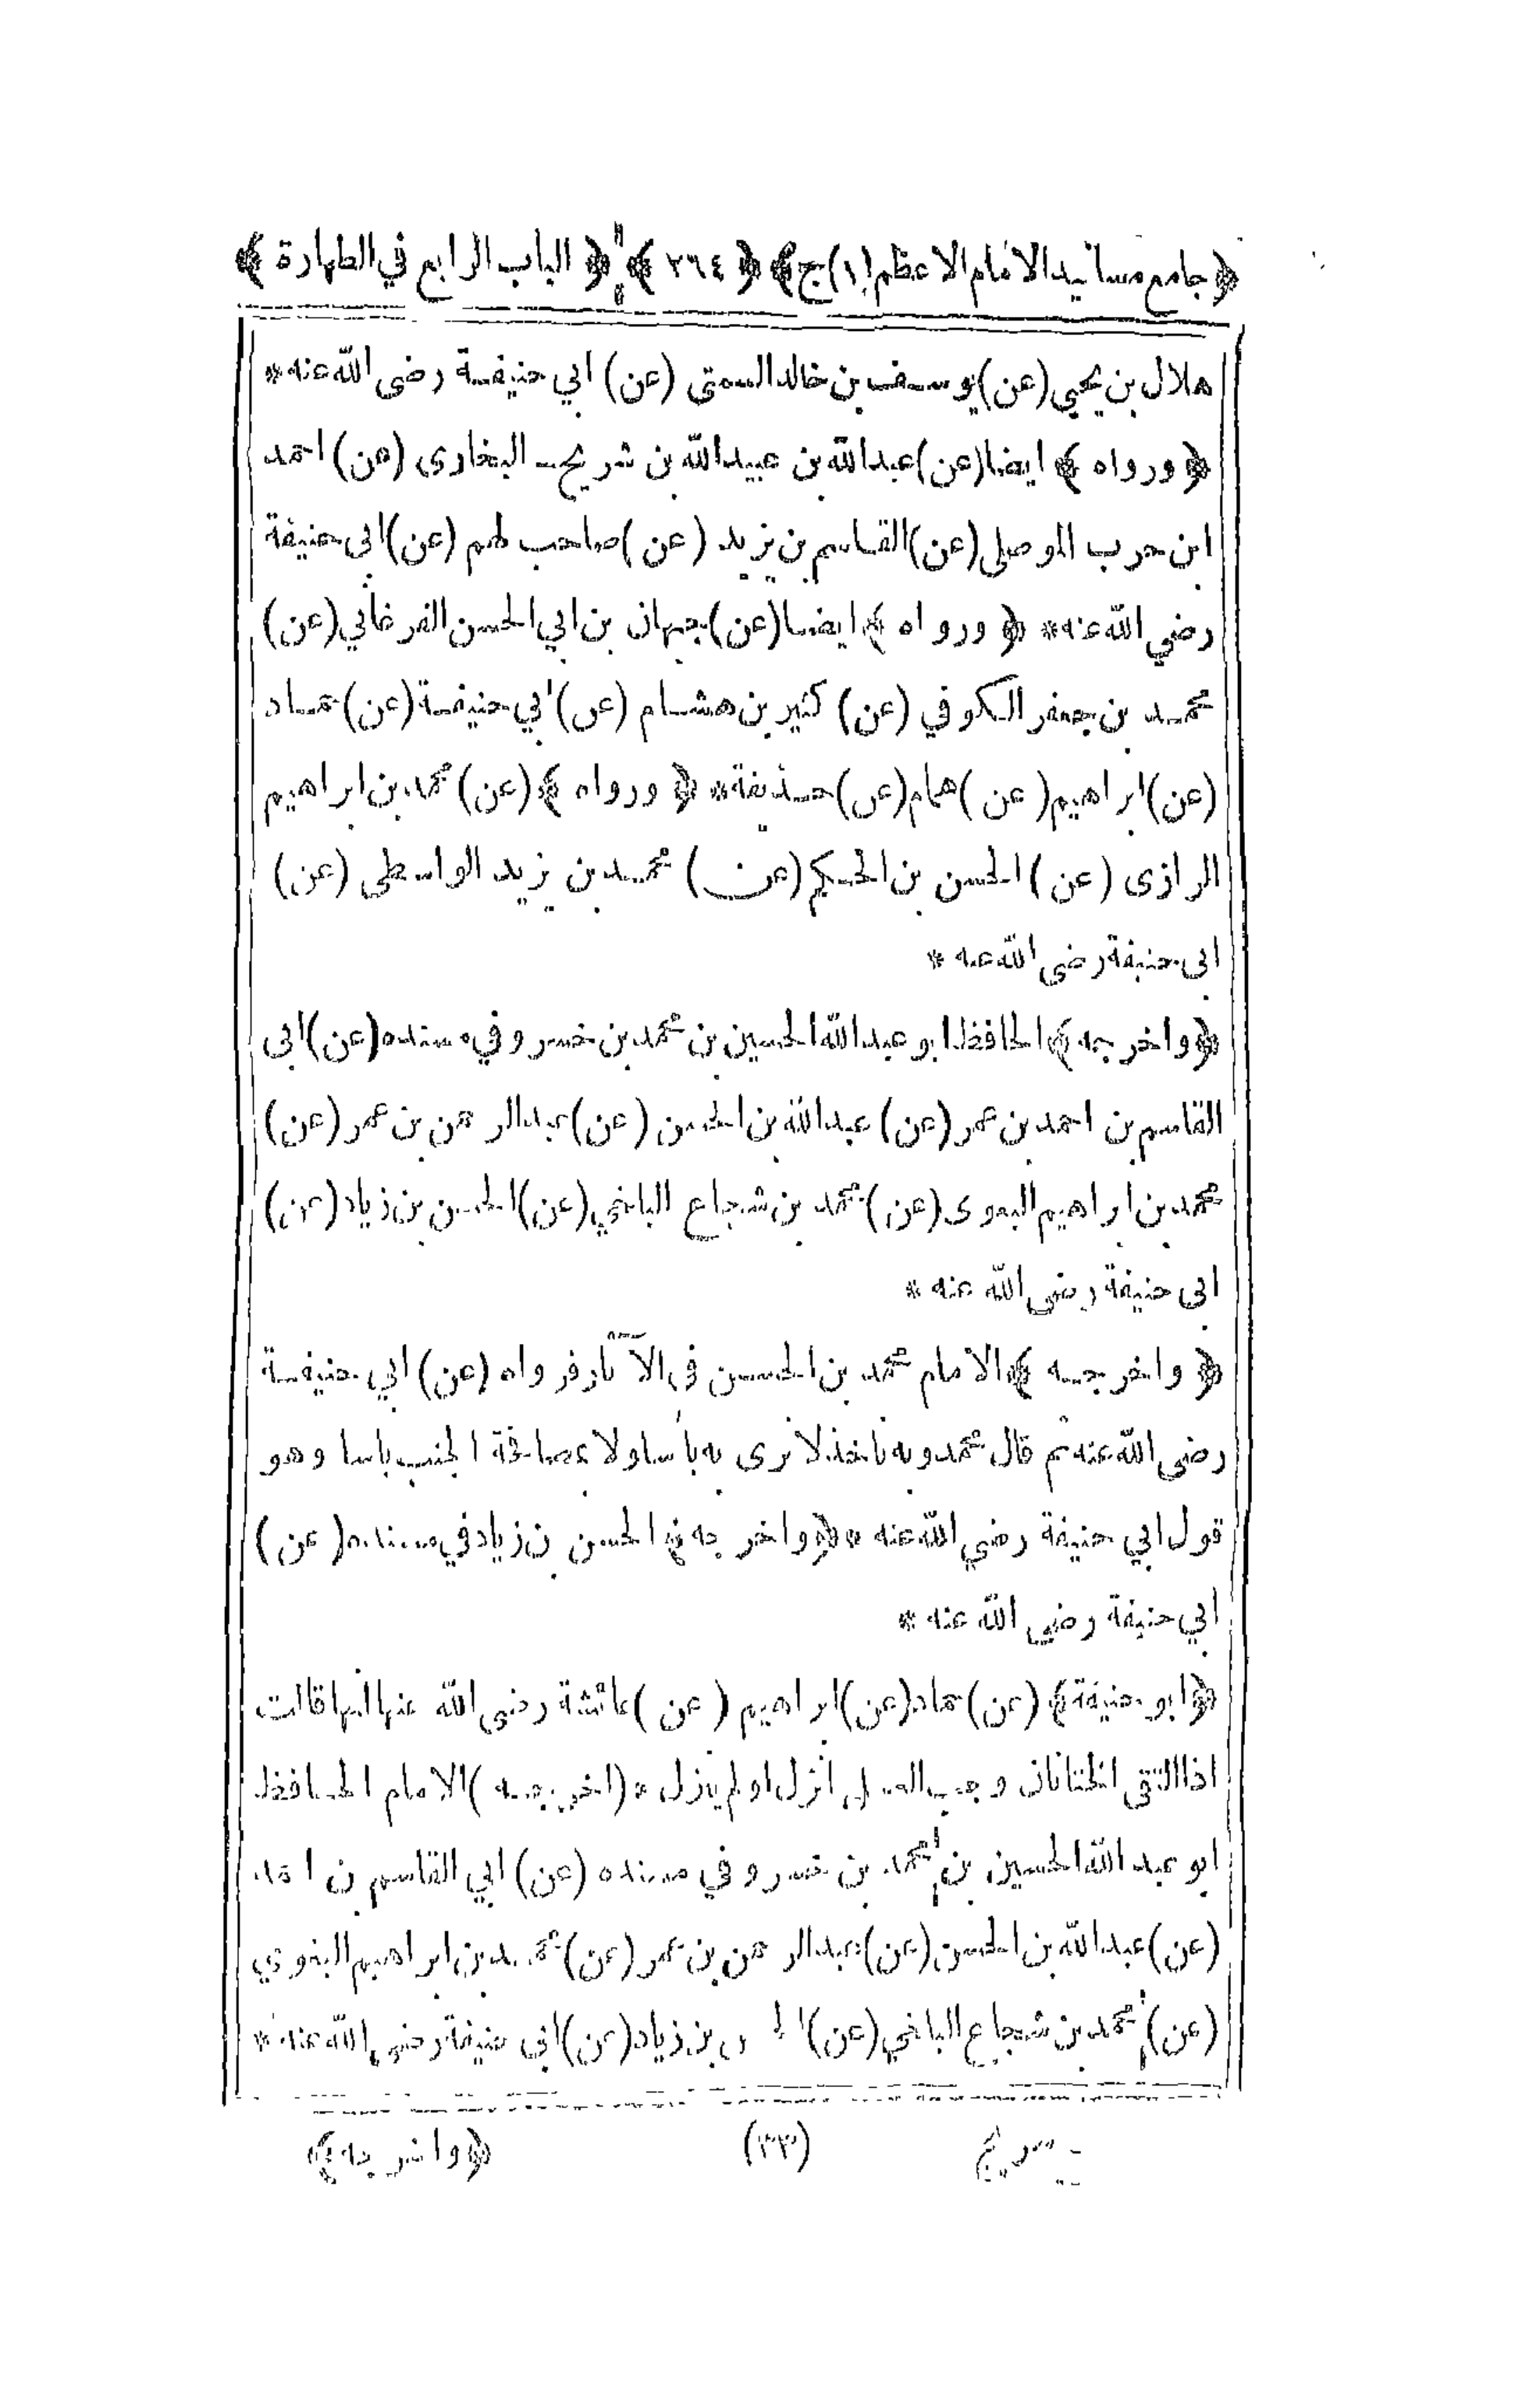 ﴿جامع مسانيد الامام الاعظم (١) ج﴾ ﴿٢٦٤﴾ ﴿الباب الرابع في الطهارة﴾
هلال بن يحيى (عن) يوسف بن خالد السمتى (عن) ابي حنيفة رضى الله عنه *
﴿ورواه﴾ ايضا (عن) عبد الله بن عبيد الله بن شريح البخارى (عن) احمد
ابن حرب الموصلى (عن) القاسم بن يزيد (عن) صاحب لهم (عن) ابى حنيفة
رضي الله عنه * ﴿ورواه﴾ ايضا (عن) جبهان بن ابي الحسن الفرغاني (عن)
محمد بن جعفر الكوفي (عن) كثير بن هشام (عن) ابي حنيفة (عن) حماد
(عن) ابراهيم (عن) همام (عن) حذيفة * ﴿ورواه﴾ (عن) محمد بن ابراهيم
الرازى (عن) الحسن بن الحكيم (عن) محمد بن يزيد الواسطى (عن)
ابى حنيفة رضى الله عنه *
﴿واخرجه﴾ الحافظ ابو عبد الله الحسين بن محمد بن خسرو في مسنده (عن) ابى
القاسم بن احمد بن عمر (عن) عبد الله بن الحسن (عن) عبد الرحمن بن عمر (عن)
محمد بن ابراهيم البغوى (عن) محمد بن شجاع البلخي (عن) الحسن بن زياد (عن)
ابى حنيفة رضى الله عنه *
﴿واخرجه﴾ الامام محمد بن الحسن فى الآثار فرواه (عن) ابي حنيفة
رضى الله عنه ثم قال محمد وبه ناخذ لا نرى به بأسا ولا بمصافحة الجنب باسا وهو
قول ابي حنيفة رضي الله عنه * ﴿واخرجه﴾ الحسن بن زياد في مسنده (عن)
ابي حنيفة رضي الله عنه *
﴿ابو حنيفة﴾ (عن) حماد (عن) ابراهيم (عن) عائشة رضى الله عنها انها قالت
اذا التقى الختانان وجب الغسل انزل او لم ينزل * (اخرجه) الامام الحافظ
ابو عبد الله الحسين بن محمد بن خسرو في مسنده (عن) ابي القاسم بن احمد
(عن) عبد الله بن الحسن (عن) عبد الرحمن بن عمر (عن) محمد بن ابراهيم البغوي
(عن) محمد بن شجاع البلخي (عن) الحسن بن زياد (عن) ابى حنيفة رضى الله عنه *
(٣٣) ﴿واخرجه﴾